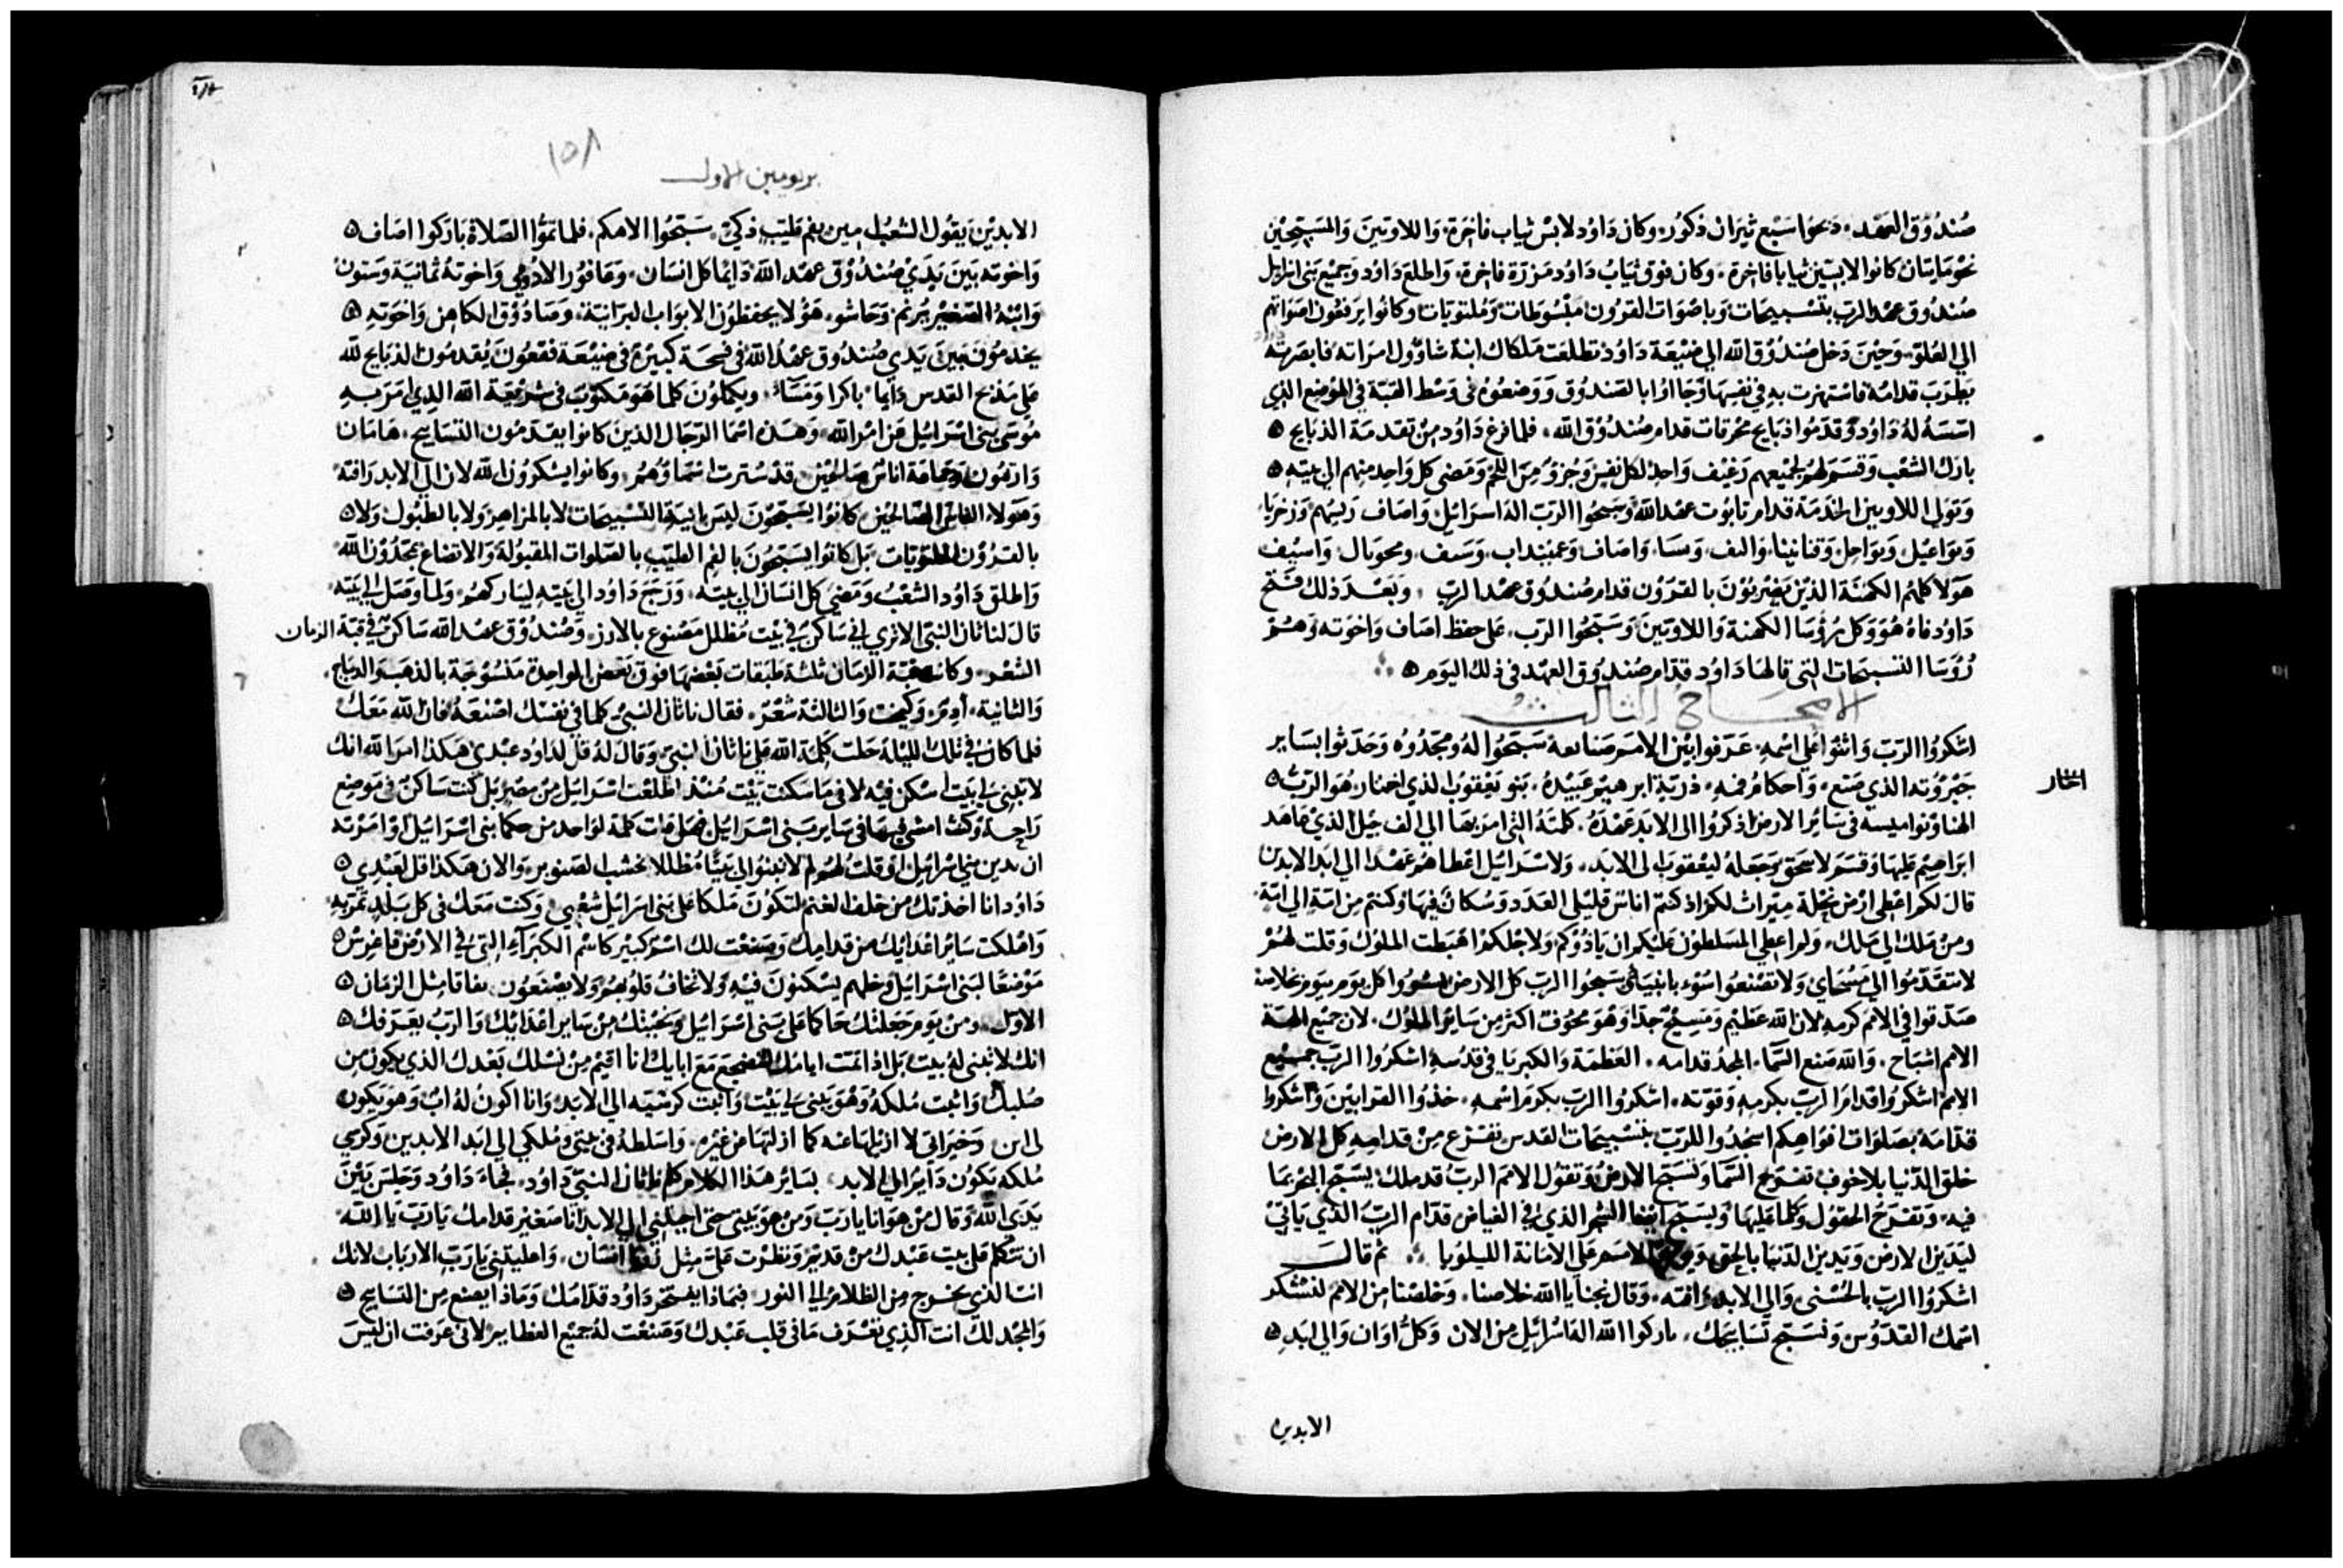 صندوق العهد، دبحوا سبع ثيران ذكور، وكان داود لابس ثياب فاخرة، واللاويين والمسبحين
نحو مايتان كانوا لابسين ثيابا فاخرة، وكان فوق ثياب داود مزرة فاخرة، واطلع داود وجميع بنى اسرايل
صندوق عهد الرب بتسبيحات وباصوات القرون مبسوطات وملتويات وكانوا يرفعون اصواتهم
الي العلو، وحين دخل صندوق الله الي ضيعة داود تطلعت ملكاك ابنة شاوول امراته فابصرته
يطرب قدامه فاستهزت به في نفسها وجااوا بالصندوق ووضعوه في وسط القبة في الموضع الذي
اسسه له داود وقدموا ذبايح محرقات قدام صندوق الله، فلما فرغ داود من تقدمة الذبايح ه
بارك الشعب وقسم لهم لجميعهم رغيف واحد لكل نفس وجزو من اللحم ومضى كل واحد منهم الي بيته ه
وتولي اللاويين الخدمة قدام تابوت عهد الله وسبحوا الرب اله اسراييل، واصاف ريسهم وزخريا،
ويواعيل، ويواحل، وقناتينا، والىف، ومسا، واصاف وعبنيداب، وسىف، ومحوىال، واسيف
هولا كلهم الكهنة الذين يضربون بالقرون قدام صندوق عهد الرب، وبعد ذلك فتح
داود فاه هو وكل روسا الكهنة واللاويين وسبحوا الرب، على حفظ اصاف واخوته وهم
روسا التسبيحات التى قالها داود قدام صندوق العهد في ذلك اليوم ه
الاصحاح الثالث
اشكروا الرب واثنوا على اسمه، عرفوا بين الامم صنايعه سبحوا له ومجدوه وحدثوا بساير
جبروته الذي صنع، واحكام فمه، ذرية ابرهيم عبيده، بنو يعقوب الذي اختار، هو الرب ه
اختار
الهنا ونواميسه فى ساير الارض اذكروا الى الابد عهده، كلمته التى امر بها الي الف جيل الذي عاهد
ابراهيم عليها وقسم لاسحق وجعله ليعقوب الى الابد، ولاسراييل اعطاهم عهدا الي ابد الابدين
قال لكم اعطى ارض نحلة ميراث لكم اذ كنتم اناس قليلي العدد وسكان فيها وكنتم من امة الي امة،
ومن ملك الي ملك، ولم اعطي المسلطون عليكم ان ياذوكم ولاجلكم اهبطت الملوك وقلت لهم
لا تتقدموا الي مسحاي ولا تصنعوا اسوء بانبياى سبحوا الرب كل الارض بشروا كل يوم بيوم بخلاصه
صدقوا في الامم كرمه لان الله عظيم ومسبح جدا وهو مخوف اكثر من ساير الملوك، لان جميع الهة
الامم اشباح، والله صنع السما، المجد قدامه، العظمة والكبريا في قدسه اشكروا الرب جميع
الامم اشكروا قدام الرب بكرمه وقوته، اشكروا الرب بكرم اسمه، خذوا القرابين واشكروا
قدامه بصلوات افواهكم اسجدوا للرب بتسبيحات القدس تفزع من قدامه كل الارض
خلق الدنيا بلا خوف تفرح السما وتسبح الارض وتقول الامم الرب قد ملك، يسبح البحر بما
فيه، وتفرح الحقول وكلما عليها ويسبح ايضا الشجر الذي في الغياض قدام الرب الذي ياتي
ليدين الارض ويدين الدنيا بالحق الامم على الامانة الليلويا ثم قال
اشكروا الرب بالحسنى، والى الابد رافته، وقال نجنا يا الله خلاصنا، وخلصنا من الامم لنشكر
اسمك القدوس ونسبح تسابيحك، باركوا الله اله اسراييل من الان وكل اوان والي ابد ه
الابدين
١٥٨
بريومين الاول
الابدين يقول الشعب امين بفم طيب ذكي، سبحوا الاهكم، فلما تموا الصلاة باركوا اصاف ه
واخوته بين يدي صندوق عهد الله دايما كل انسان، وعافور الادومي واخوته ثمانية وستون
وابنه الصغير برثم وحاشو، هولا يحفظون الابواب البرانية، وصادوق الكاهن واخوته ه
يخدموا بين يدي صندوق عهد الله في فسحة كبيرة في ضيعة فقعون يقدمون الذبايح لله
على مذبح القدس دايما باكرا ومسا، ويكملون كلما هو مكتوب في شريعة الله الذي امر به
موسى بنى اسراييل عن امر الله، وهذه اسما الرجال الذين كانوا يقدمون التسابيح، هامان
وادثمون وجماعة اناس صالحين، قد سترت اسماوهم، وكانوا يشكرون الله لان الي الابد رافته
وهولاء الناس الصالحين كانوا يسبحون ليس بانية التسبيحات لا بالمزاهر ولا بالطبول ولا ه
بالقرون الملتويات بل كانوا يسبحون بالفم الطيب بالصلوات المقبولة والاتضاع يمجدون الله
واطلق داود الشعب ومضى كل انسان الي بيته، ورجع داود الي بيته ليباركهم، ولما وصل الي بيته
قال لناثان النبي الا ترى اني ساكن في بيت مظلل مصنوع بالارز، وصندوق عهد الله ساكن في قبة الزمان
الشعر، وكانت قبة الزمان ثلثة طبقات بعضها فوق بعض الواحدة منسوجة بالذهب والديباج
والثانية، أدم، وكيمخت والثالثة شعر، فقال ناثان النبي كلما في نفسك اصنعه فان الله معك
فلما كان في تلك الليلة حلت كلمة الله على ناثان النبي وقال له قل لداود عبدي هكذا امر الله انك
لا تبنى لي بيت اسكن فيه لاني ما سكنت بيت منذ اطلعت اسراييل من مصر بل كنت ساكن في موضع
راحة وكنت امشي في ساير بنى اسراييل فهل قلت كلمة لواحد من حكما بنى اسراييل او امرته
ان يدين بني اسراييل او قلت لهم لم لا تبنوا لي بيتا مظللا بخشب الصنوبر، والان هكذا قل لعبدي ه
داود انا اخذتك من خلف الغنم لتكون ملكا على بنى اسراييل شعبي، وكنت معك في كل بلد تمر به
واهلكت ساير اعدايك من قدامك وصنعت لك اسم كبير كاسم الكبرآء التى في الارض فاغرس ه
موضعا لبنى اسراييل وخلهم يسكنون فيه ولا تخاف قلوبهم ولا يصنعون نفاقا مثل الزمان ه
الاول، ومن يوم جعلتك حاكما على بنى اسراييل ونجيتك من ساير اعدايك والرب يعرفك ه
انك لا تبنى له بيت بل اذا تمت ايامك تنضجع مع ابايك انا اقيم من نسلك بعدك الذي يكون من
صلبك واثبت ملكه وهو يبنى لي بيت واثبت كرسيه الي الابد، وانا اكون له اب وهو يكون
لى ابن وخيراتى لا ازيلها عنه كما ازلتها عن غيره، واسلطه في بيتي وملكي الي ابد الابدين وكرسي
ملكه يكون دايم الي الابد، بساير هذا الكلام كلم ناثان النبي داود، فجاء داود وجلس بين
يدى الله وقال من هو انا يارب ومن هو بيتى حتى اجبلتني الي الابد انا صغير قدامك يارب يا الله
ان تتكلم على بيت عبدك من قديم ونظرت على مثل انسان، واعليتني يا رب الارباب لانك
انت الذي تخرج من الظلام الي النور، فبماذا يفتخر داود قدامك وماذا يصنع من التسابيح ه
والمجد لك انت الذي تعرف ما في قلب عبدك وصنعت له جميع العظايم لانى عرفت ان ليس